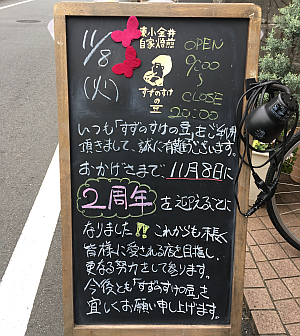 11/8
(火)
東小金井
自家焙煎
すずのすけの
豆
OPEN
9:00
〜
CLOSE
20:00
いつも「すずのすけの豆」をご利用
頂きまして、誠に有難うございます。
おかげさまで、11月8日に
2周年を迎えることに
なりました!! これからも末長く
皆様に愛される店を目指し、
更なる努力をして参ります。
今後とも「すずのすけの豆」を
宜しくお願い申し上げます。